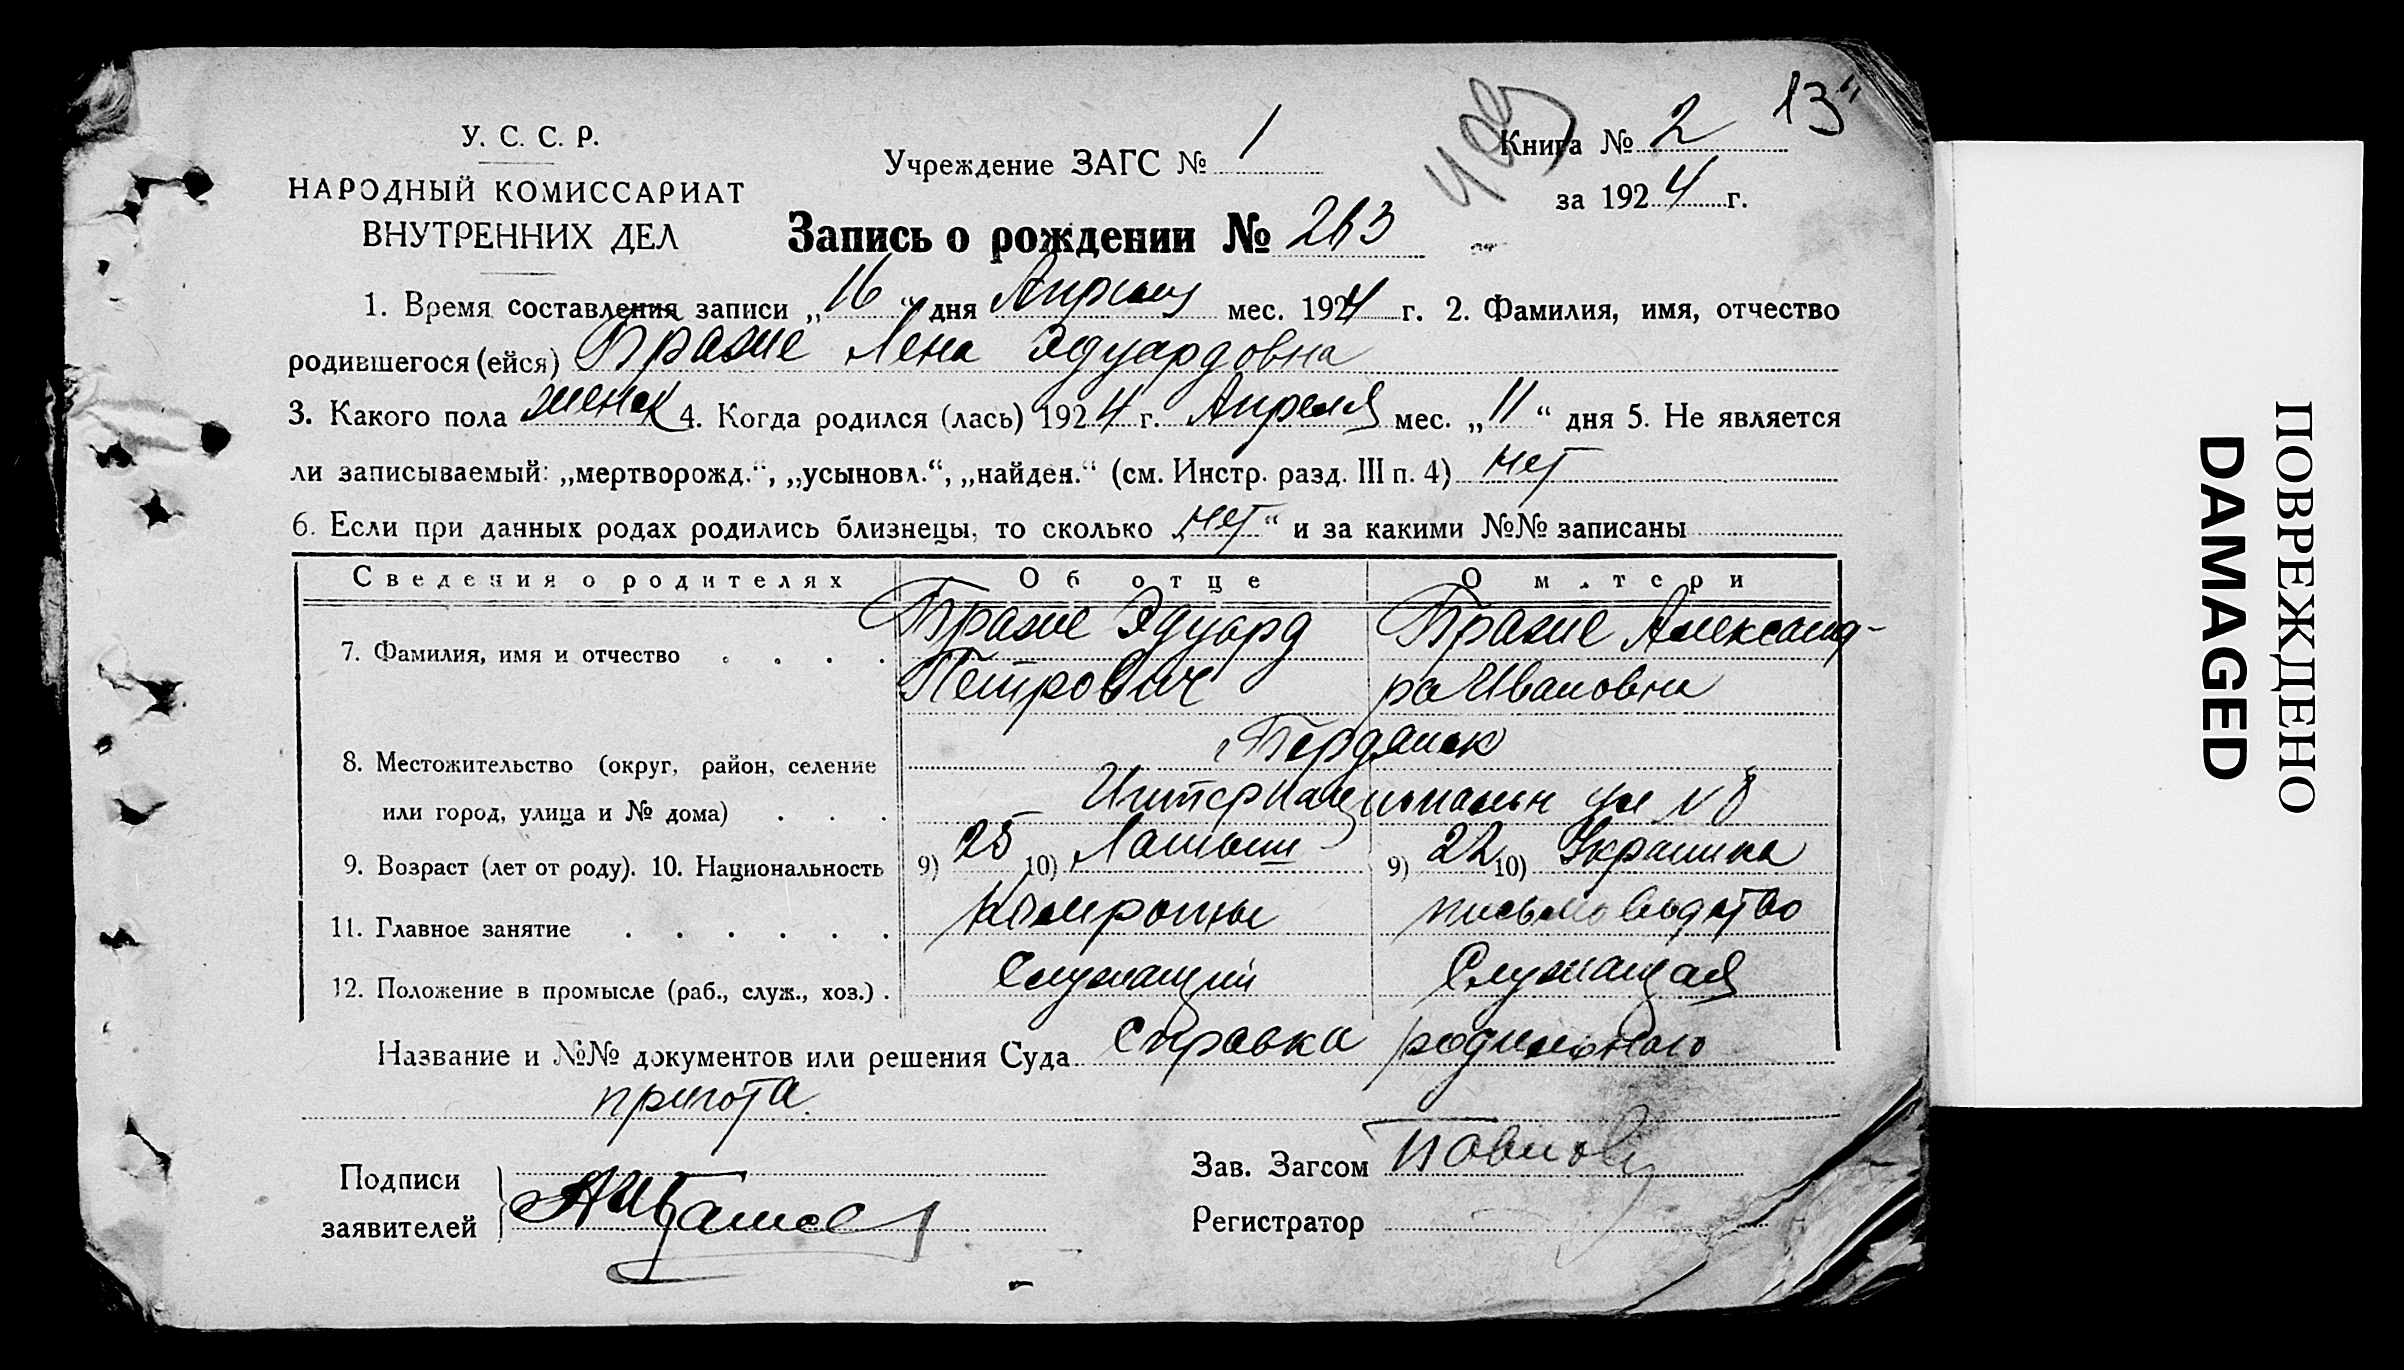 13
У. С. С. Р.
НАРОДНЫЙ КОМИССАРИАТ
ВНУТРЕННИХ ДЕЛ
Учреждение ЗАГС № 1
Книга № 2
за 1924 г.
Запись о рождении № 263
1. Время составления записи „16“ дня Апреля мес. 1924 г. 2. Фамилия, имя, отчество
родившегося (ейся) Бразле Лена Эдуардовна
3. Какого пола женск 4. Когда родился (лась) 1924 г. Апреля мес. „11“ дня 5. Не является
ли записываемый: „мертворожд.“, „усыновл.“, „найден.“ (см. Инстр. разд. III п. 4) нет
6. Если при данных родах родились близнецы, то сколько „нет“ и за какими №№ записаны
Сведения о родителях Об отце О м.тери
7. Фамилия, имя и отчество . . . . Эдуард Александ-
Петрович ра Ивановна
Бердянск
8. Местожительство (округ, район, селение
или город, улица и № дома) . . . Интернациональн ул № 8
9. Возраст (лет от роду). 10. Национальность 9) 25 10) Латыш 9) 22 10) Украинка
11. Главное занятие . . . . . . письмоводство
12. Положение в промысле (раб., служ., хоз.) . Служащий Служащая
Название и №№ документов или решения Суда Справка родильного
приюта.
Подписи
заявителей
Зав. Загсом
Регистратор
ПОВРЕЖДЕНО
DAMAGED